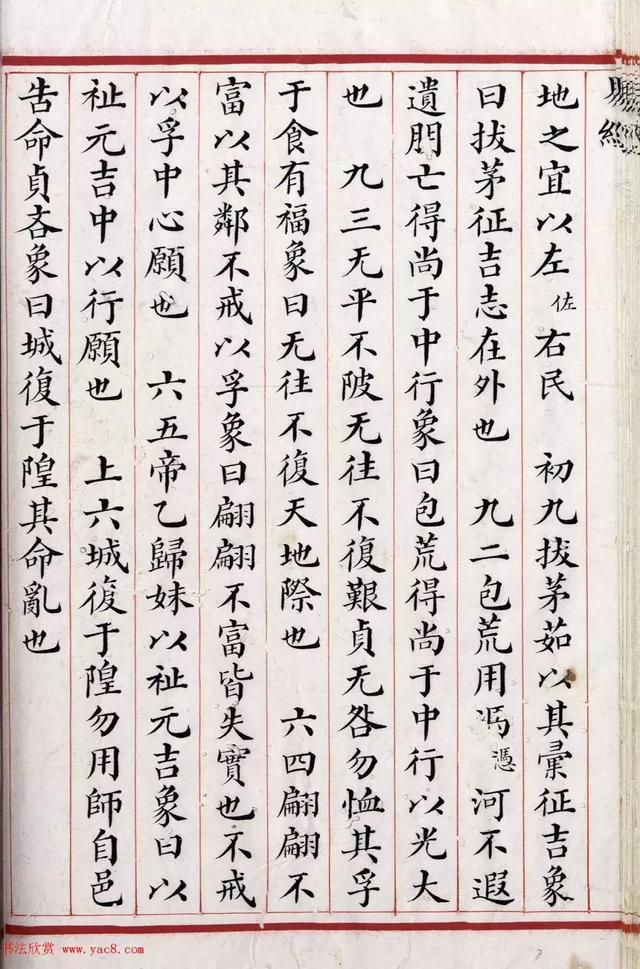 地之宜以左佐右民　初九拔茅茹以其彙征吉象
曰拔茅征吉志在外也　九二包荒用馮憑河不遐
遺朋亡得尚于中行象曰包荒得尚于中行以光大
也　九三无平不陂无往不復艱貞无咎勿恤其孚
于食有福象曰无往不復天地際也　六四翩翩不
富以其鄰不戒以孚象曰翩翩不富皆失實也不戒
以孚中心願也　六五帝乙歸妹以祉元吉象曰以
祉元吉中以行願也　上六城復于隍勿用師自邑
告命貞吝象曰城復于隍其命亂也
书法欣赏 www.yac8.com